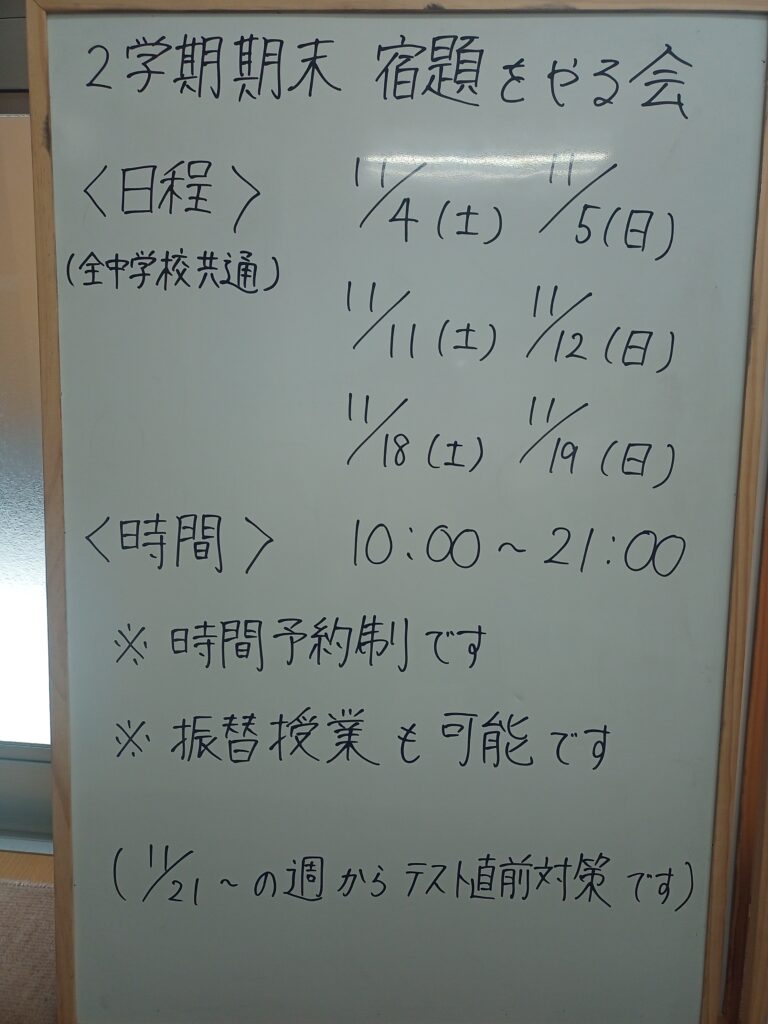 2学期期末 宿題をやる会
〈日程〉 11/4(土) 11/5(日)
(全中学校共通)
11/11(土) 11/12(日)
11/18(土) 11/19(日)
〈時間〉 10:00～21:00
※ 時間予約制です
※ 振替授業も可能です
(11/21～の週からテスト直前対策です)